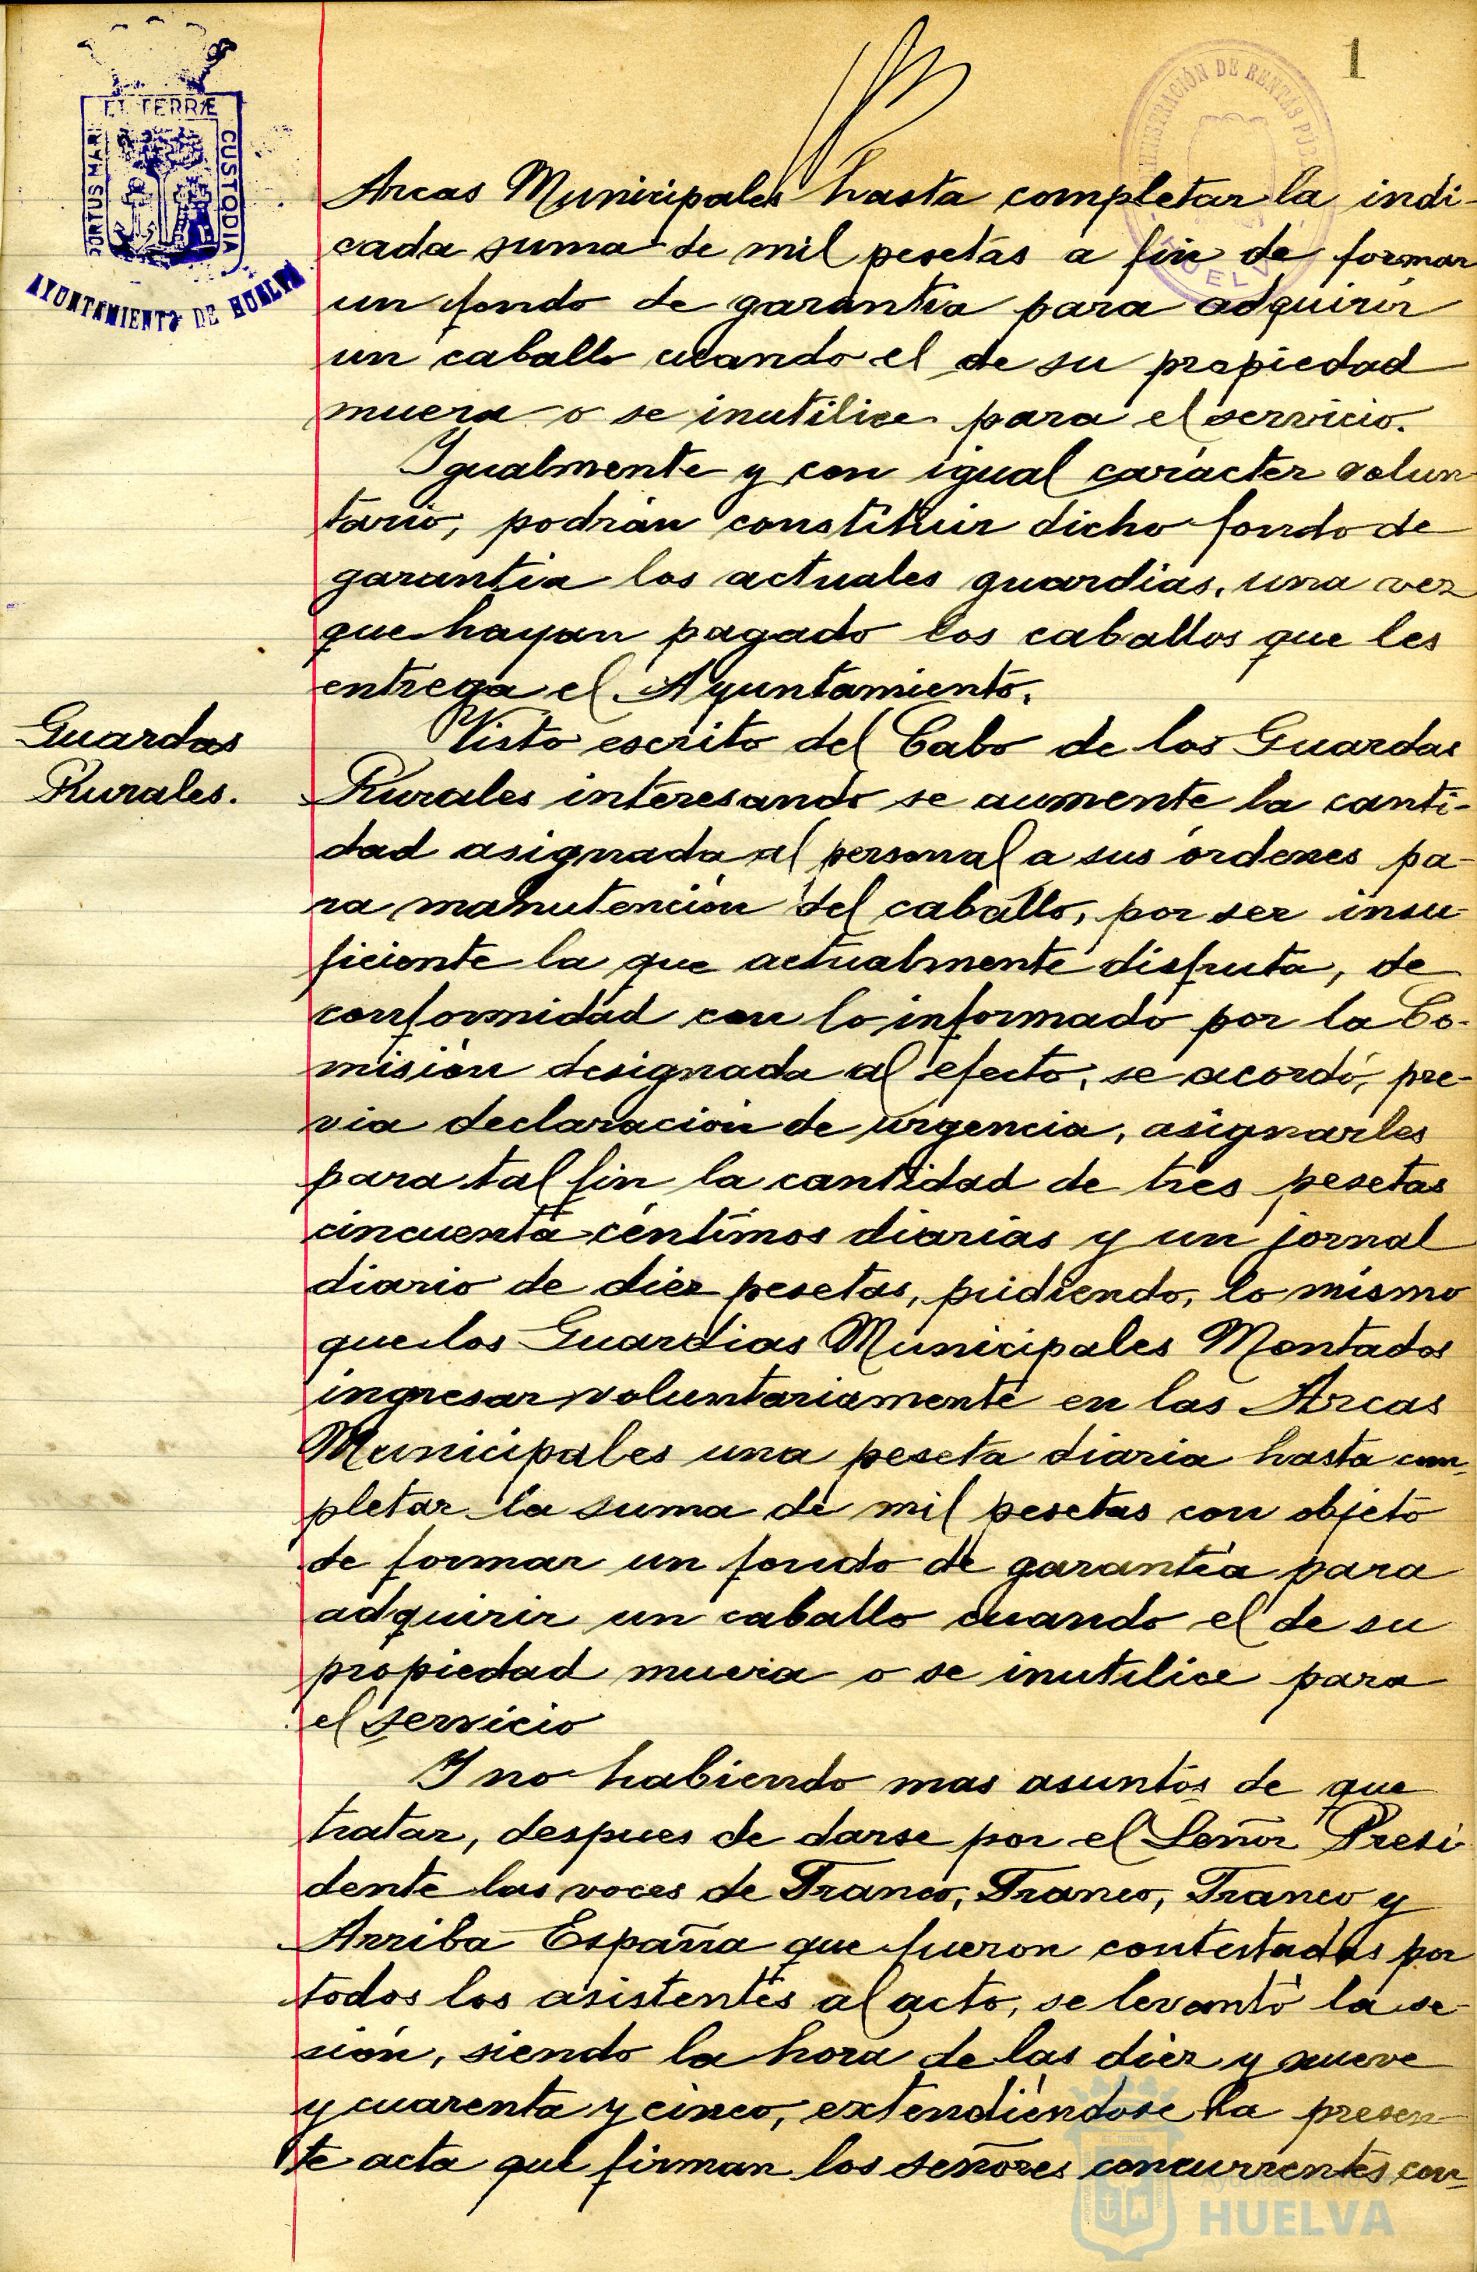 1
ET TERRÆ
PORTUS MARIS
CUSTODIA
AYUNTAMIENTO DE HUELVA
ADMINISTRACIÓN DE RENTAS PÚB
HUELVA
Arcas Municipales hasta completar la indi-
cada suma de mil pesetas a fin de formar
un fondo de garantia para adquirir
un caballo cuando el de su propiedad
muera o se inutilice para el servicio.
Igualmente y con igual carácter volun-
tario, podrán constituir dicho fondo de
garantia los actuales guardias, una vez
que hayan pagado los caballos que les
entrega el Ayuntamiento.
Guardas
Rurales.
Visto escrito del Cabo de los Guardas
Rurales interesando se aumente la canti-
dad asignada al personal a sus órdenes pa-
ra manutención del caballo, por ser insu-
ficiente la que actualmente disfruta, de
conformidad con lo informado por la Co-
misión designada al efecto, se acordó, pre-
via declaración de urgencia, asignarles
para tal fin la cantidad de tres pesetas
cincuenta céntimos diarias y un jornal
diario de diez pesetas, pudiendo, lo mismo
que los Guardias Municipales Montados
ingresar voluntariamente en las Arcas
Municipales una peseta diaria hasta com-
pletar la suma de mil pesetas con objeto
de formar un fondo de garantía para
adquirir un caballo cuando el de su
propiedad muera o se inutilice para
el servicio
Y no habiendo mas asuntos de que
tratar, despues de darse por el Señor Presi
dente las voces de Franco, Franco, Franco y
Arriba España que fueron contestadas por
todos los asistentes al acto, se levantó la se-
sión, siendo la hora de las diez y nueve
y cuarenta y cinco, extendiéndose la presen-
te acta que firman los señores concurrentes con-
Ayuntamiento de
HUELVA